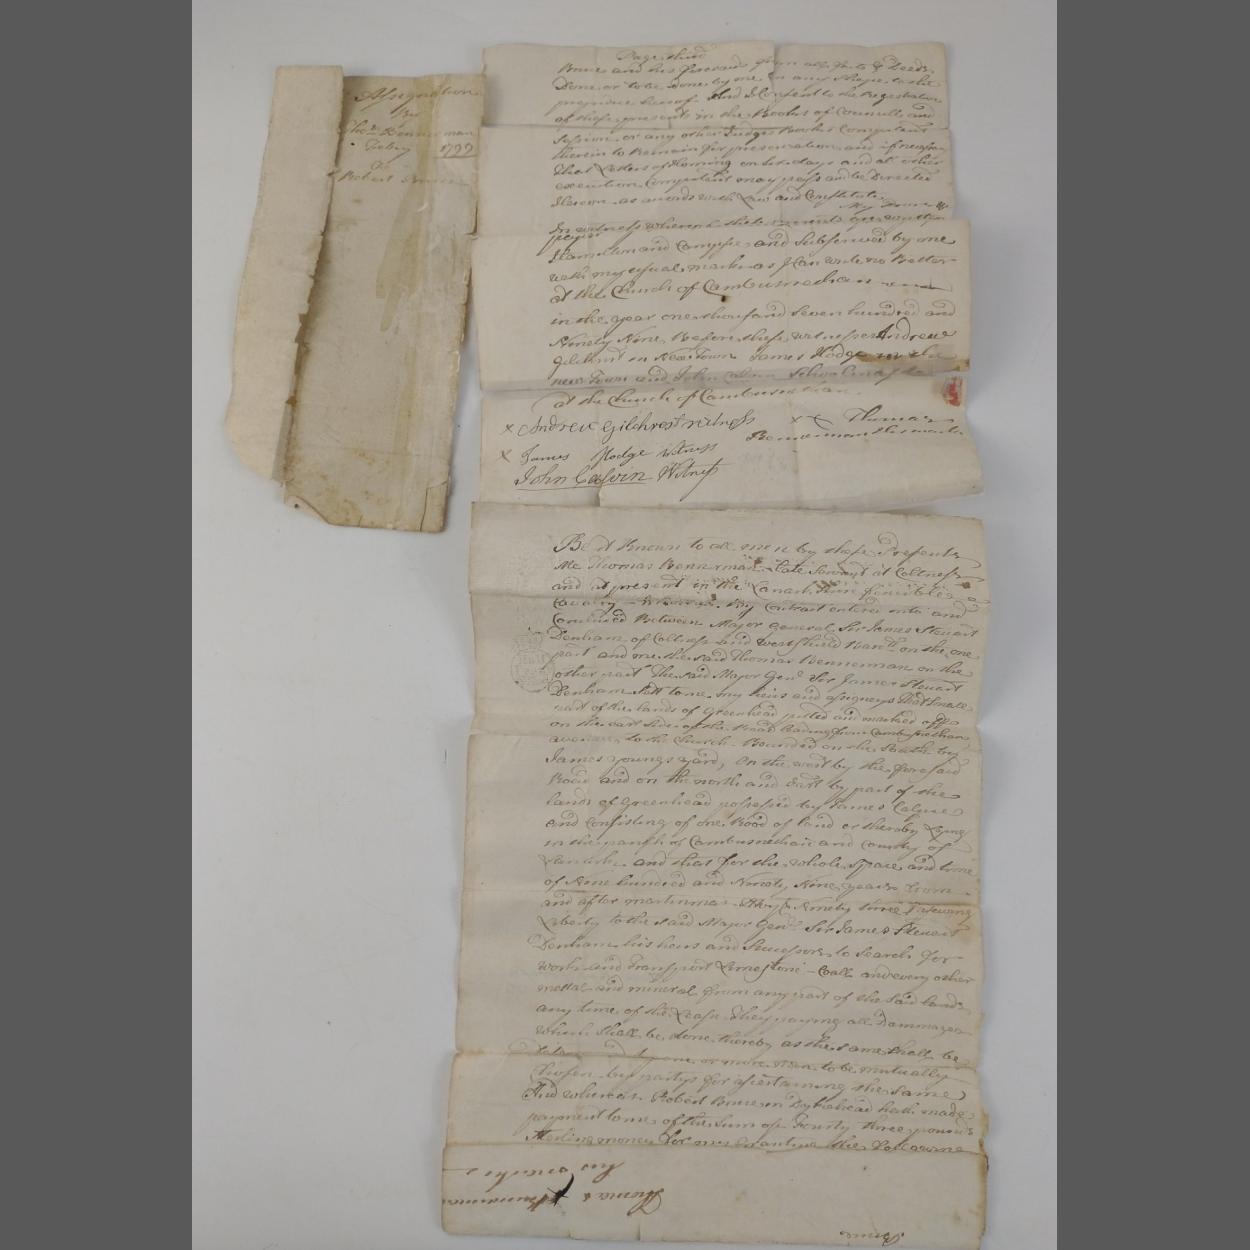 Assignation
By
Thos. Bennerman
1799
To
Robert Bruce
Page third
Bruce and his foresaids from all facts & Deeds
Done or to be done by me in any shape to the
prejudice hereof And I Consent to the Registration
of these presents in the Books of Councill and
Session or any other Judges Books Competent
therein to Remain for preservation and if necessary
that Letters of Horning on six days and all other
execution Competent may pass and be Directed
hereon as accords with Law and Constitute
My Procrs
In witness whereof these presents are written
Hamilton and Campsie and Subscrived by me
with my usual mark as I Can write no Better
at the Church of Cambusnethan
in the year one thousand seven hundred and
Ninety Nine Before these witnesses Andrew
Gilchrist in New Town James Hodge in the
new Town and John Calvin Schoolmaster
at the Church of Cambusnethan
x Andrew Gilchrest witness
x x Thomas
Bennerman His mark
x James Hodge witness
John Calvin Witness
Be it Known to all men by these Presents
Me Thomas Bennerman Late Servant at Coltness
and at present in the Lanark Shire fencible
Cavalry Whereas By Contract entered into and
Concluded Between Major General Sir James Steuart
Denham of Coltness and Westshield Barrt. on the one
part and me the said Thomas Bennerman on the
other part The said Major Genl. Sir James Steuart
Denham Sett to me my heirs and assigneys That small
part of the lands of Greenhead pitted and marked off
on the east side of the Road leading from Cambusnethan
avenue to the Church Bounded on the South by
James Youngs yard, On the west by the foresaid
Road and on the north and East by part of the
lands of Greenhead possessed by James
and Consisting of one Rood of land or thereby Lying
in the parish of Cambusnethan and County of
Lanark and that for the whole space and time
of Nine hundred and Ninety Nine years from
and after martinmas Ninety three Reserving
Liberty to the said Major Genl. Sir James Steuart
Denham his heirs and Successors to search for
work and Transport Limestone Coall and every other
metal and mineral from any part of the said lands
any time of the Lease They paying all Dammages
which shall be done thereby as the same shall be
one or more men to be mutually
Chosen by partys for ascertaining the same
And whereas Robert Bruce in Dykehead hath made
payment to me of the Sum of Fourty three pounds
Sterling money for my Granting the following
Thomas
Bennerman
his mark
Bruce